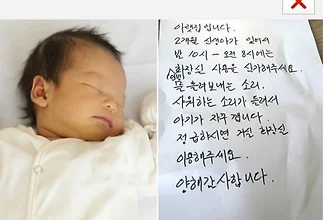 아랫집 입니다.
2개월 신생아가 있어서
밤 10시 - 오전 8시에는
안방 화장실 사용을 신경써주세요.
물 흘려보내는 소리,
샤워하는 소리가 들려서
아기가 자주 깹니다.
정 급하시면 거실 화장실
이용해주세요.
양해감사합니다.